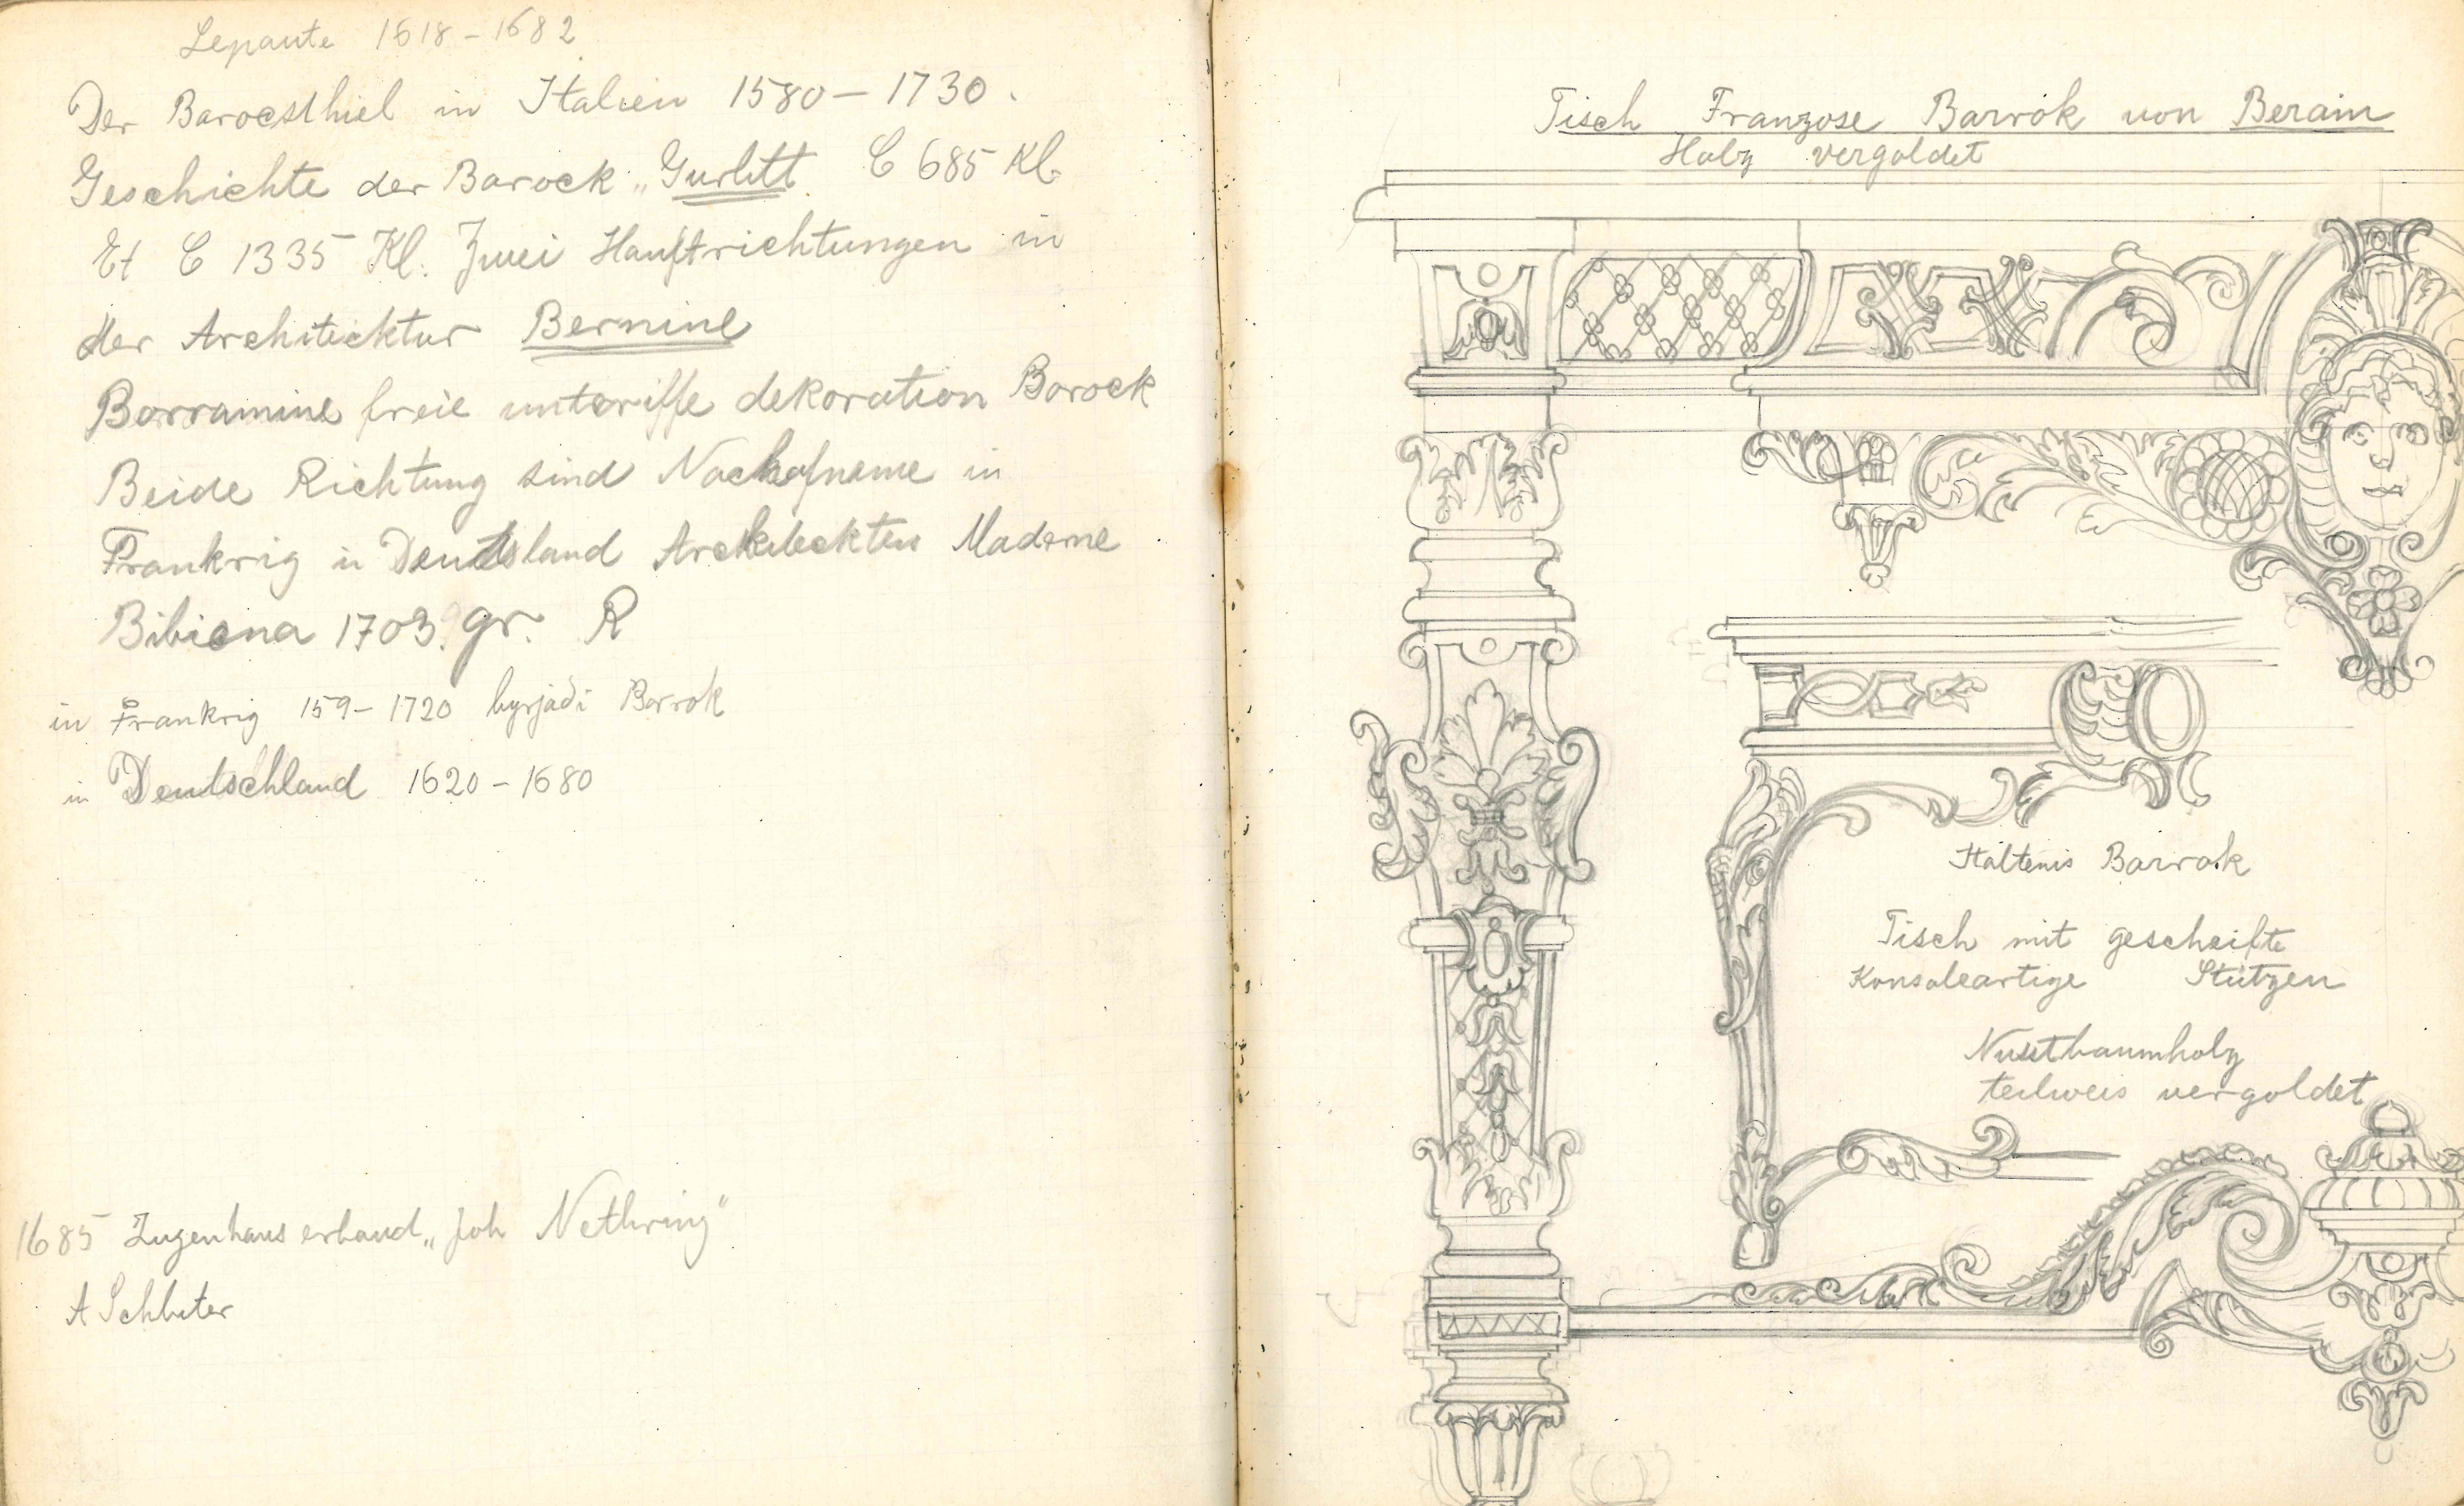 Lepaute 1618 - 1682
Der Barocsthiel in Italien 1580 - 1730.
Geschichte der Barock „Gurlitt C 685 Kl.
Et C 1335 Kl. Zwei Hauftrichtungen in
der Architecktur Bernine
Borramine freie unteriffe dekoration Borock
Beide Richtung sind Nachofneme in
Frankrig in Deutsland Madorne
Bibiena 1703. gr. R
in Frankrig 159 - 1720 byrjadi Barrok
in Deutschland 1620 - 1680
1685 Zugenhaus erbaud „Joh Nethring"
A Schluter
Tisch Franzose Barrok von Berain
Holz vergoldet
Italtenis Barrok
Tisch mit gescheifte
Konsoleartige Stützen
Nusstbaumholz
teilweis vergoldet